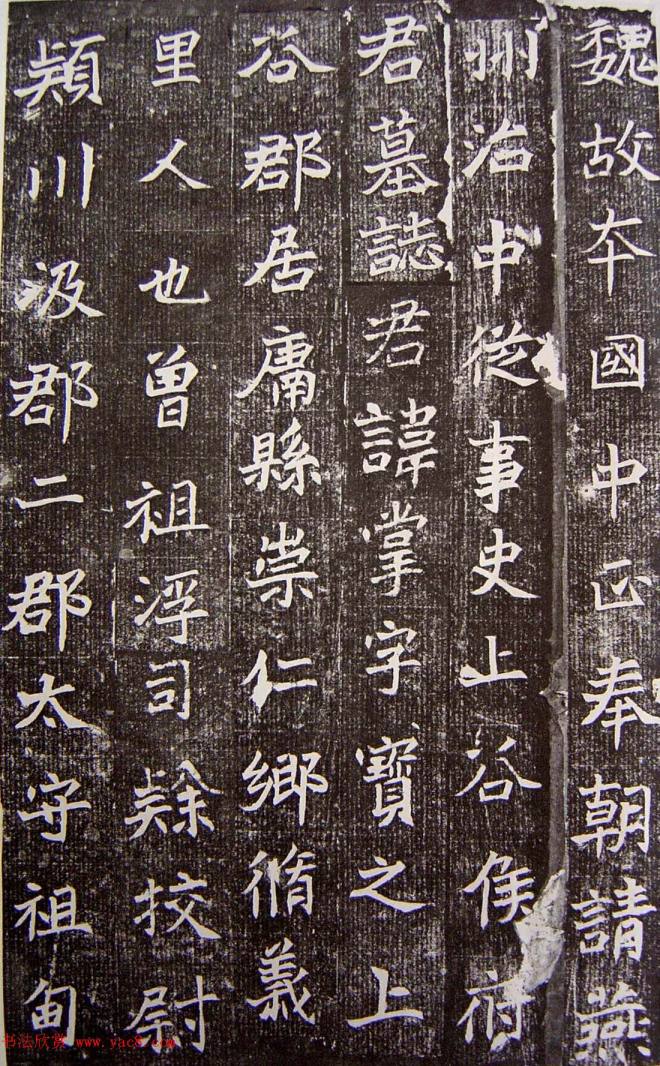 魏故夲國中正奉朝請燕
州治中從事史上谷侯府
君墓誌君諱掌字寶之上
谷郡居庸縣崇仁鄉脩義
里人也曾祖浮司隸挍尉
潁川汲郡二郡太守祖甸
书法欣赏 www.yac8.com